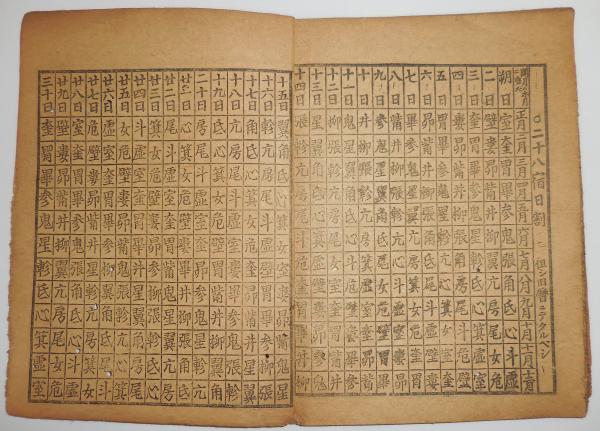 ○二十八宿日割 但シ旧暦ニテクルベシ
正月二月三月四月五月六月七月八月九月十月十一月十二月
朔日室奎胃畢参鬼張角氐心斗虚
二日壁婁昴觜井柳翼亢房尾女危
三日奎胃畢参鬼星軫氐心箕虚室
四日婁昴觜井柳張角房尾斗危壁
五日胃畢参鬼星翼亢心箕女室奎
六日昴觜井柳張軫氐尾斗虚壁婁
七日畢参鬼星翼角房箕女危奎胃
八日觜井柳張軫亢心斗虚室婁昴
九日参鬼星翼角氐尾女危壁胃畢
十日井柳張軫亢房箕虚室奎昴觜
十一日鬼星翼角氐心斗危壁婁畢参
十二日柳張軫亢房尾女室奎胃觜井
十三日星翼角氐心箕虚壁婁昴参鬼
十四日張軫亢房尾斗危奎胃畢井柳
十五日翼角氐心箕女室婁昴觜鬼星
十六日軫亢房尾斗虚壁胃畢参柳張
十七日角氐心箕女危奎昴觜井星翼
十八日亢房尾斗虚室婁畢参鬼張軫
十九日氐心箕女危壁胃觜井柳翼角
二十日房尾斗虚室奎昴参鬼星軫亢
廿一日心箕女危壁婁畢井柳張角氐
廿二日尾斗虚室奎胃觜鬼星翼亢房
廿三日箕女危壁婁昴参柳張軫氐心
廿四日斗虚室奎胃畢井星翼角房尾
廿五日女危壁婁昴觜鬼張軫亢心箕
廿六日虚室奎胃畢参柳翼角氐尾斗
廿七日危壁婁昴觜井星軫亢房箕女
廿八日室奎胃畢参鬼張角氐心斗虚
廿九日壁婁昴觜井柳翼亢房尾女危
三十日奎胃畢参鬼星軫氐心箕虚室